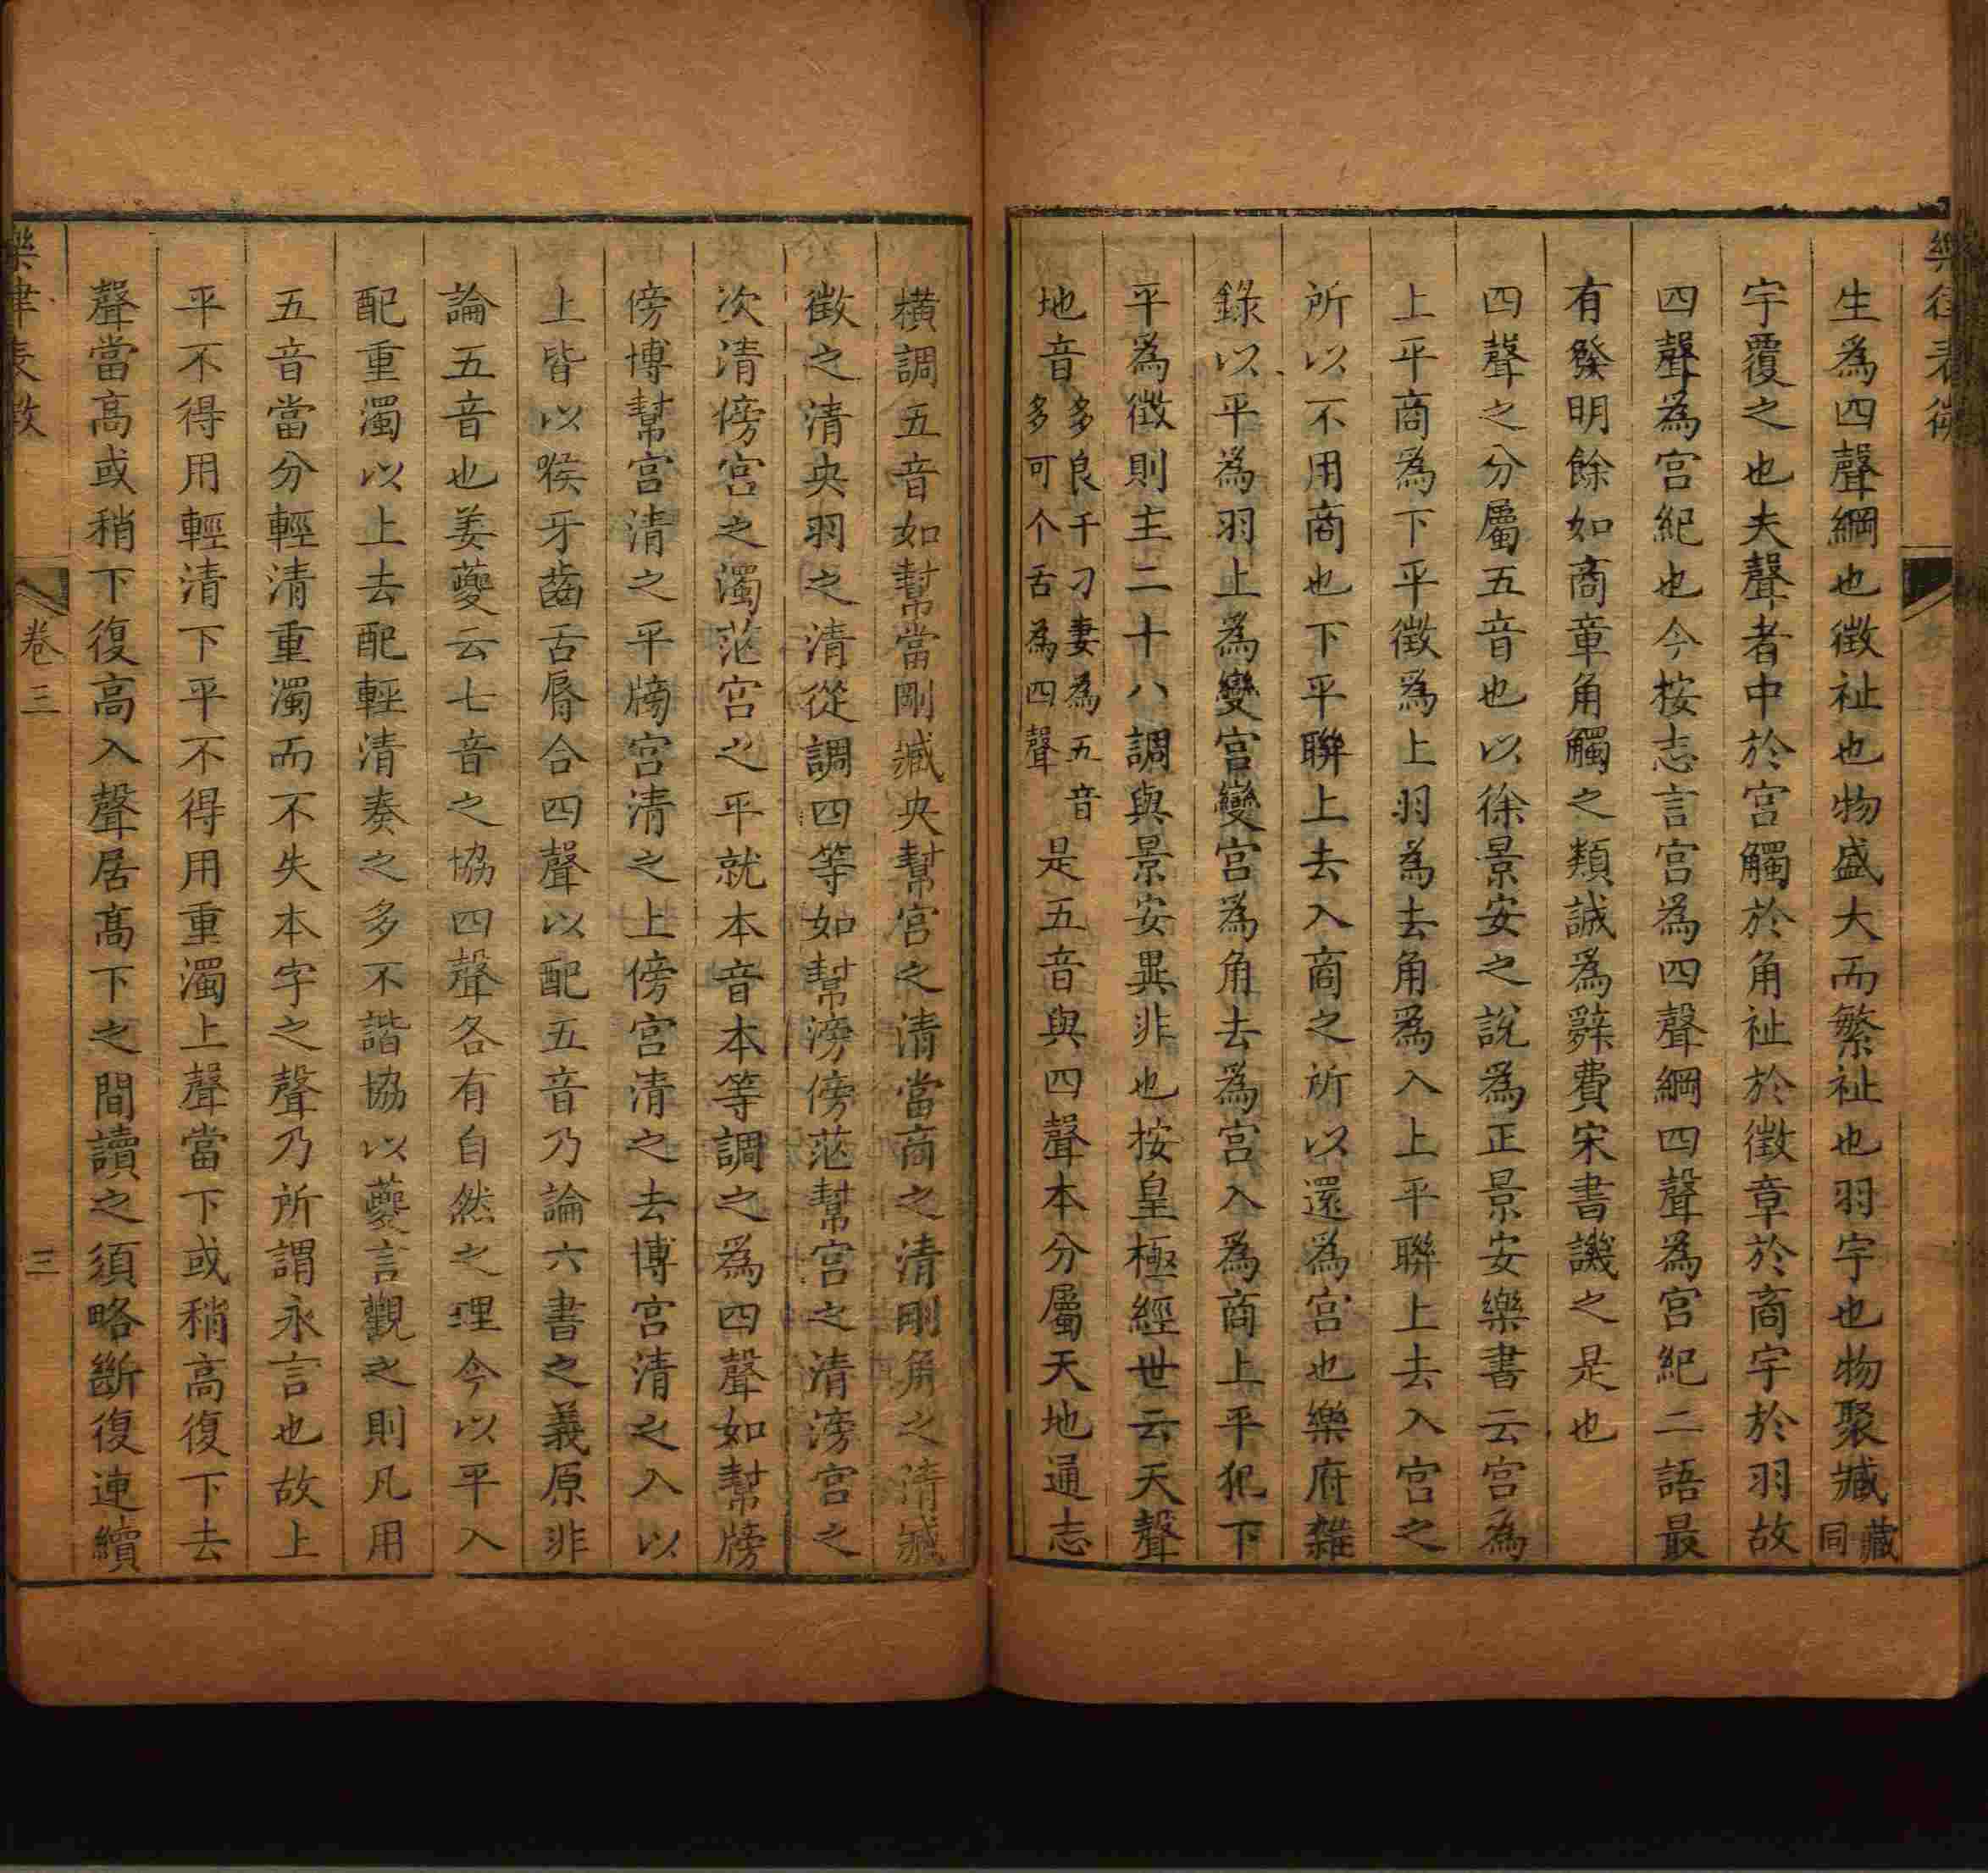 樂律表微
生為四聲綱也徵祉也物盛大而繁祉也羽宇也物聚臧藏同
宇覆之也夫聲者中於宮觸於角祉於徵章於商宇於羽故
四聲為宮紀也今按志言宮為四聲綱四聲為宮紀二語最
有發明餘如商章角觸之類誠為辭費宋書譏之是也
四聲之分屬五音也以徐景安之說為正景安樂書云宮為
上平商為下平徵為上羽為去角為入上平聯上去入宮之
所以不用商也下平聯上去入商之所以還為宮也樂府雜
錄以平為羽上為變宮變宮為角去為宮入為商上平犯下
平為徵則主二十八調與景安異非也按皇極經世云天聲
地音多良千刀妻為五音多可个舌為四聲是五音與四聲本分屬天地通志
橫調五音如幫當剛臧央幫宮之清當商之清剛角之清臧
徵之清央羽之清從調四等如幫滂傍茫幫宮之清滂宮之
次清傍宮之濁茫宮之平就本音本等調之為四聲如幫牓
傍博幫宮清之平牓宮清之上傍宮清之去博宮清之入以
上皆以喉牙齒舌脣合四聲以配五音乃論六書之義原非
論五音也姜夔云七音之協四聲各有自然之理今以平入
配重濁以上去配輕清奏之多不諧協以夔言觀之則凡用
五音當分輕清重濁而不失本字之聲乃所謂永言也故上
平不得用輕清下平不得用重濁上聲當下或稍高復下去
聲當高或稍下復高入聲居高下之間讀之須略斷復連續
樂律表微
卷三
三